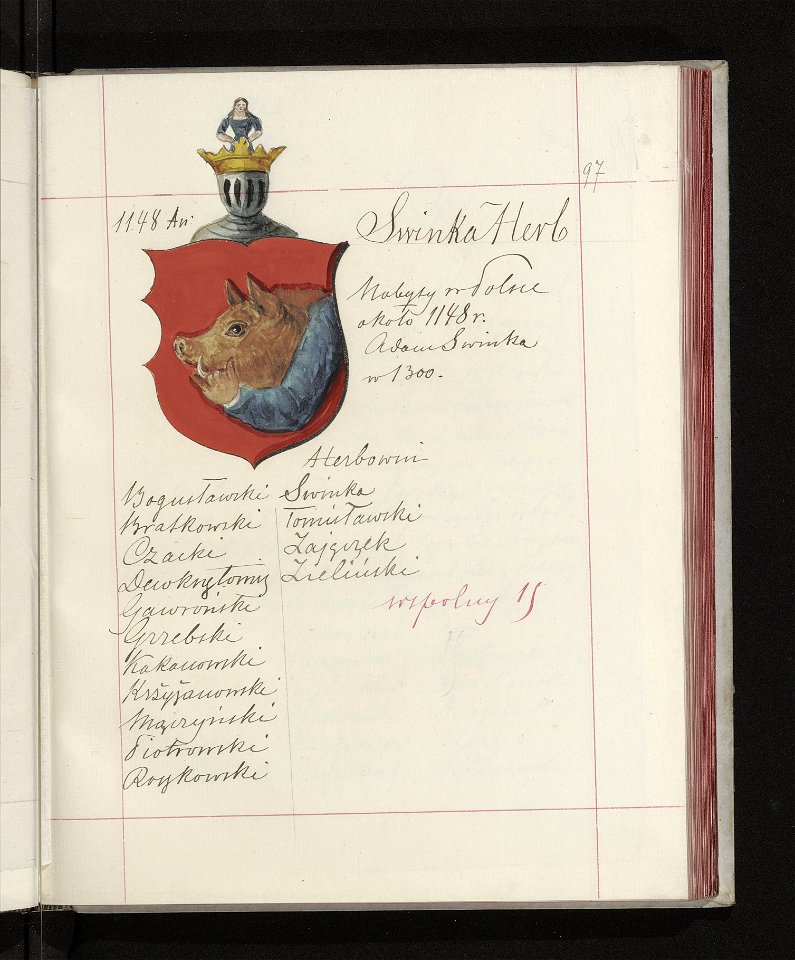 97
1148 An:
Swinka Herb
Nabyty w Polsce
około 1148 r.
Adam Swinka
w 1300.
Herbowni
Bogusławski
Bratkowski
Czacki
Gawroński
Grzebski
Kakanowski
Krzyżanowski
Mączyński
Piotrowski
Roykowski
Swinka
Tomisławski
Zajączek
Zieliński
wspolny 15